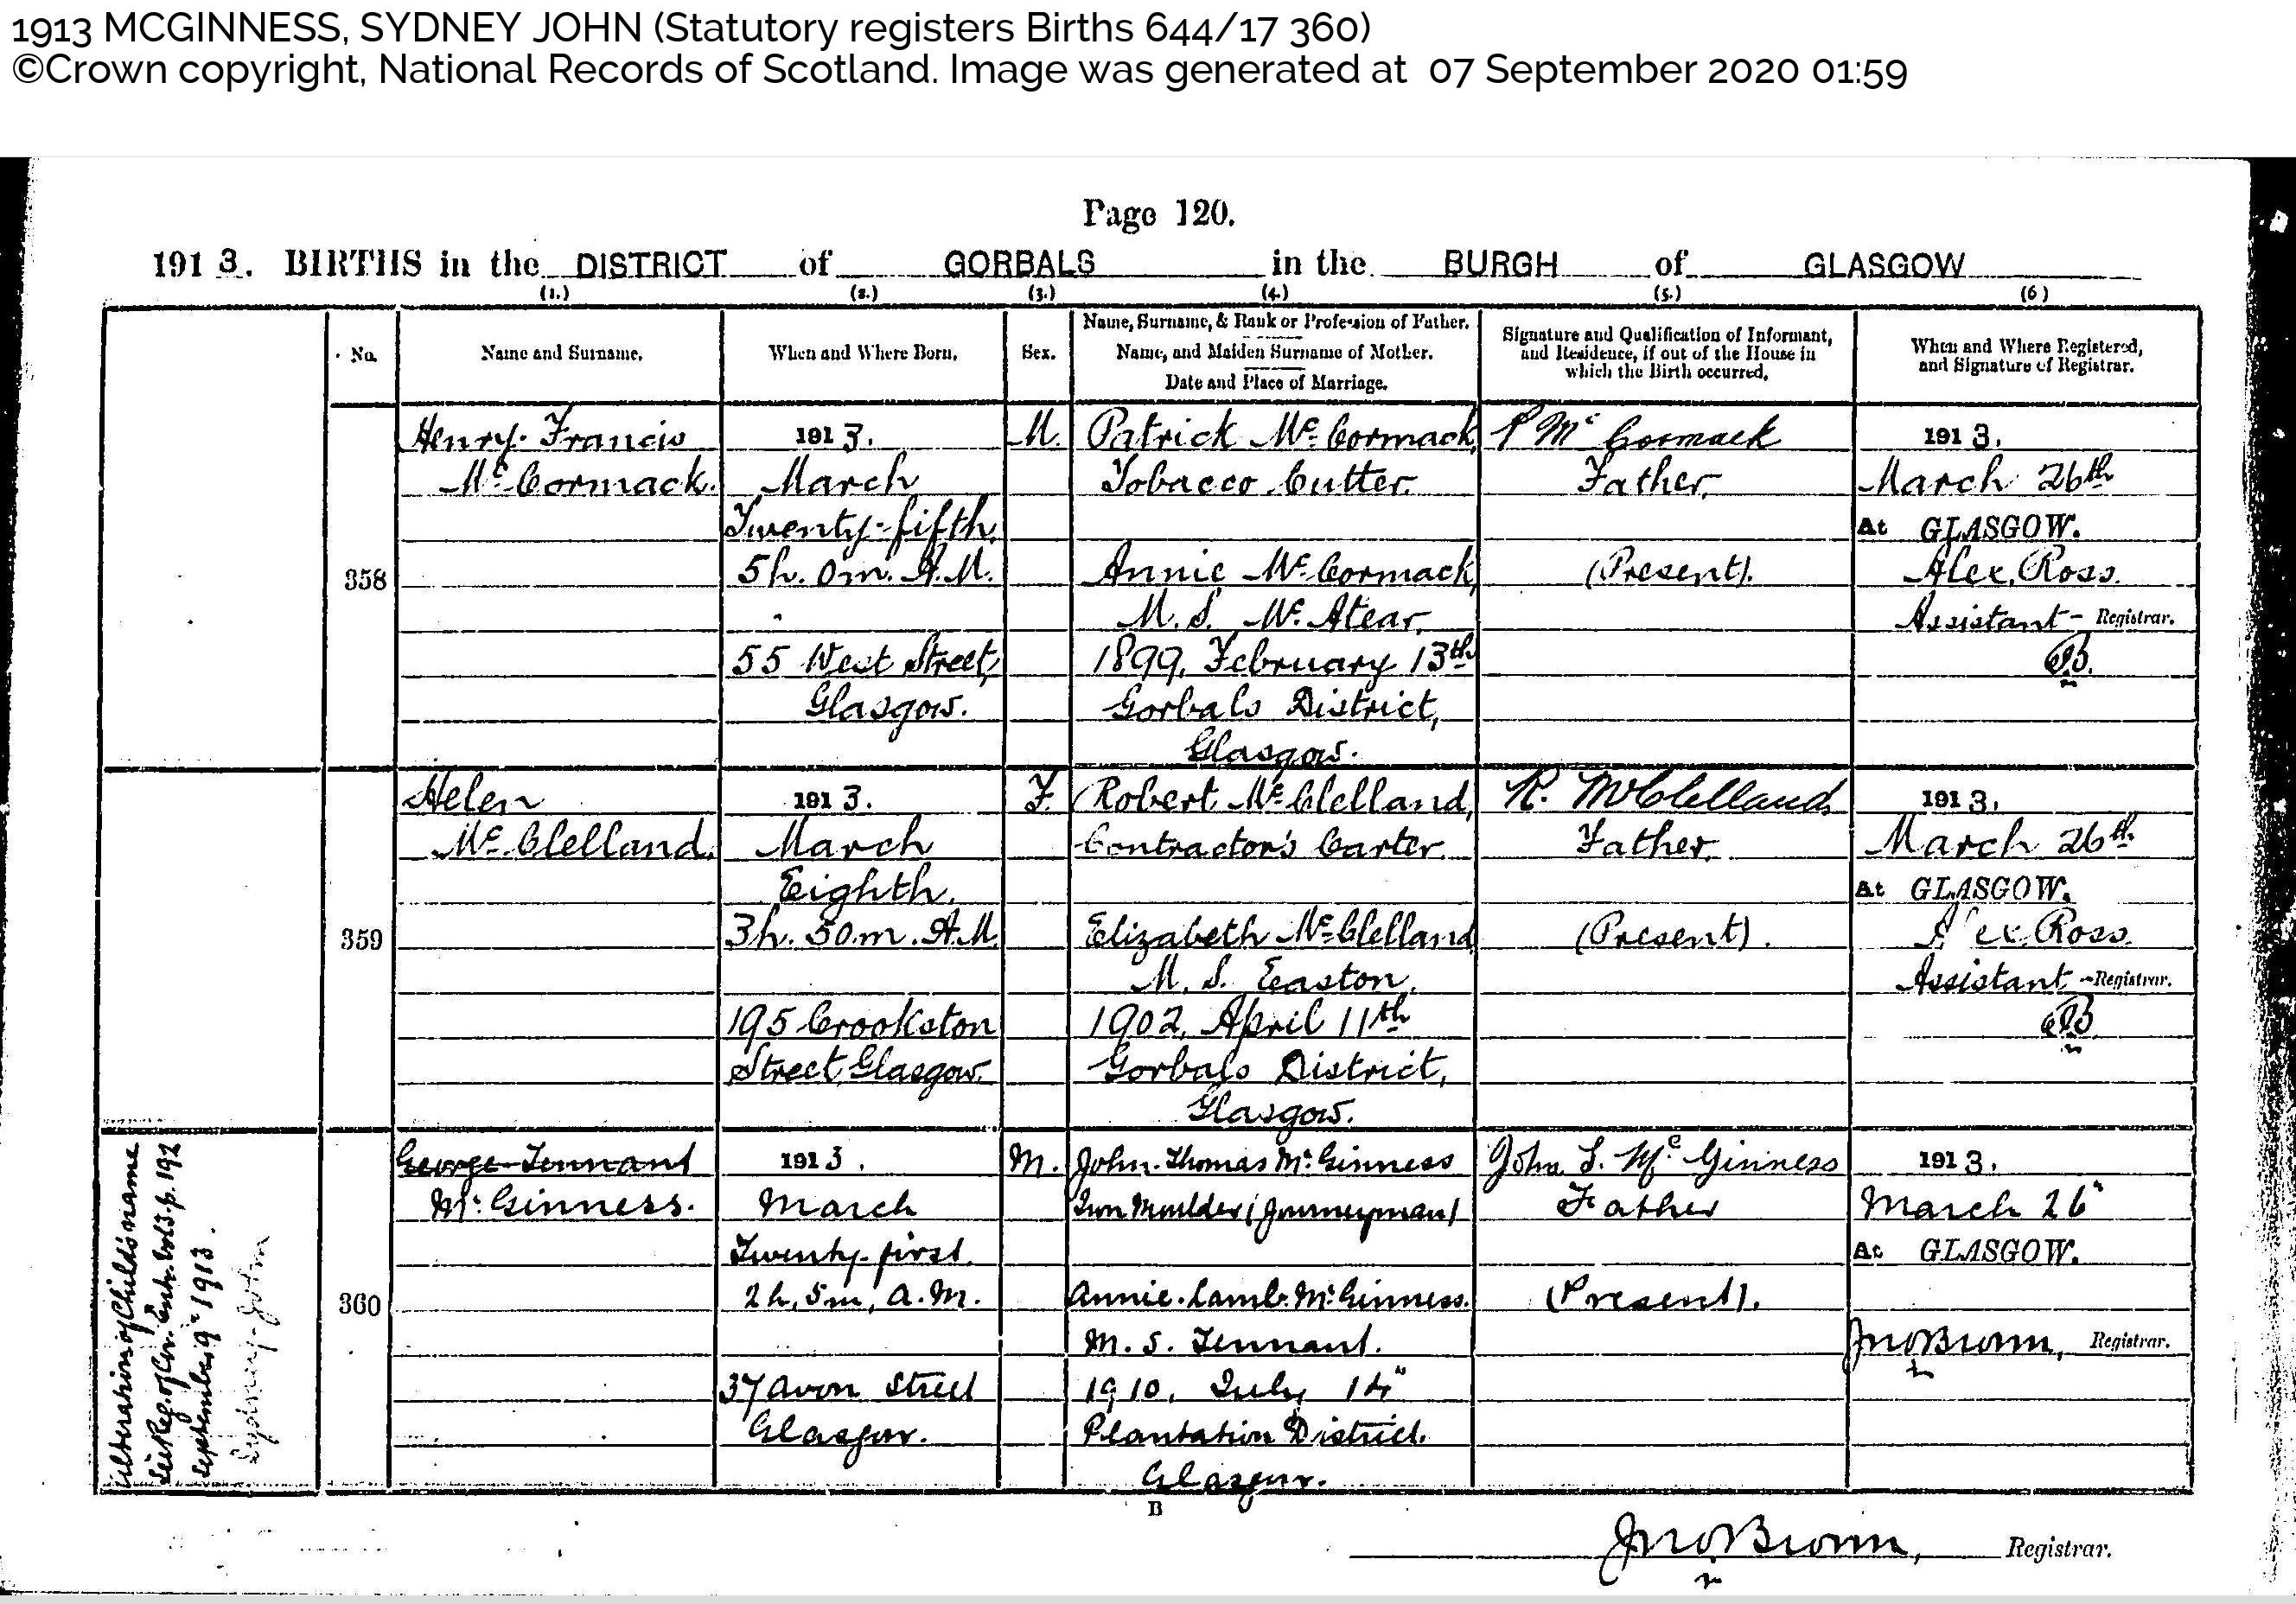 1913 MCGINNESS, SYDNEY JOHN (Statutory registers Births 644/17 360)
©Crown copyright, National Records of Scotland. Image was generated at 07 September 2020 01:59
Page 120.
1913. BIRTHS in the DISTRICT of GORBALS in the BURGH of GLASGOW
(1.) (2.) (3.) (4.) (5.) (6)
No.
Name and Surname.
When and Where Born.
Sex.
Name, Surname, & Rank or Profession of Father.
Name, and Maiden Surname of Mother.
Date and Place of Marriage.
Signature and Qualification of Informant,
and Residence, if out of the House in
which the Birth occurred.
When and Where Registered,
and Signature of Registrar.
358
Henry Francis
Mc Cormack.
1913.
March
Twenty-fifth,
5h. 0m. A.M.
55 West Street,
Glasgow.
M.
Patrick Mc Cormack,
Tobacco Cutter.
Annie Mc Cormack,
M.S. Mc Atear.
1899, February 13th
Gorbals District,
Glasgow.
P Mc Cormack
Father,
(Present).
1913.
March 26th
At GLASGOW.
Alex. Ross.
Assistant- Registrar.
359
Helen
Mc Clelland.
1913.
March
Eighth,
3h. 50m. A.M.
195 Crookston
Street, Glasgow.
F.
Robert Mc Clelland,
Contractor's Carter.
Elizabeth Mc Clelland
M.S. Easton.
1902, April 11th
Gorbals District,
Glasgow.
R. McClelland,
Father.
(Present).
1913.
March 26th
At GLASGOW.
Alex. Ross
Assistant - Registrar.
Alteration of Child's name
See Reg. of Cor. Ent. Vol 3. p. 192
September 9" 1913.
Sydney John
360
George Tennant
Mc Ginness.
1913.
March
Twenty-first.
2h, 5m, A.M.
37 Avon Street
Glasgow.
M.
John Thomas Mc Ginness
Iron Moulder (Journeyman)
Annie Lamb Mc Ginness.
M.S. Tennant.
1910, July 14"
Plantation District.
Glasgow.
John T. Mc Ginness
Father
(Present).
1913.
March 26"
At GLASGOW.
Jno Brown, Registrar.
B
Jno Brown, Registrar.